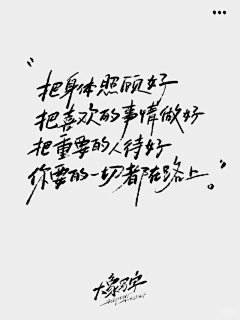 “把身体照顾好
把喜欢的事情做好
把重要的人待好
你要的一切都在路上。”